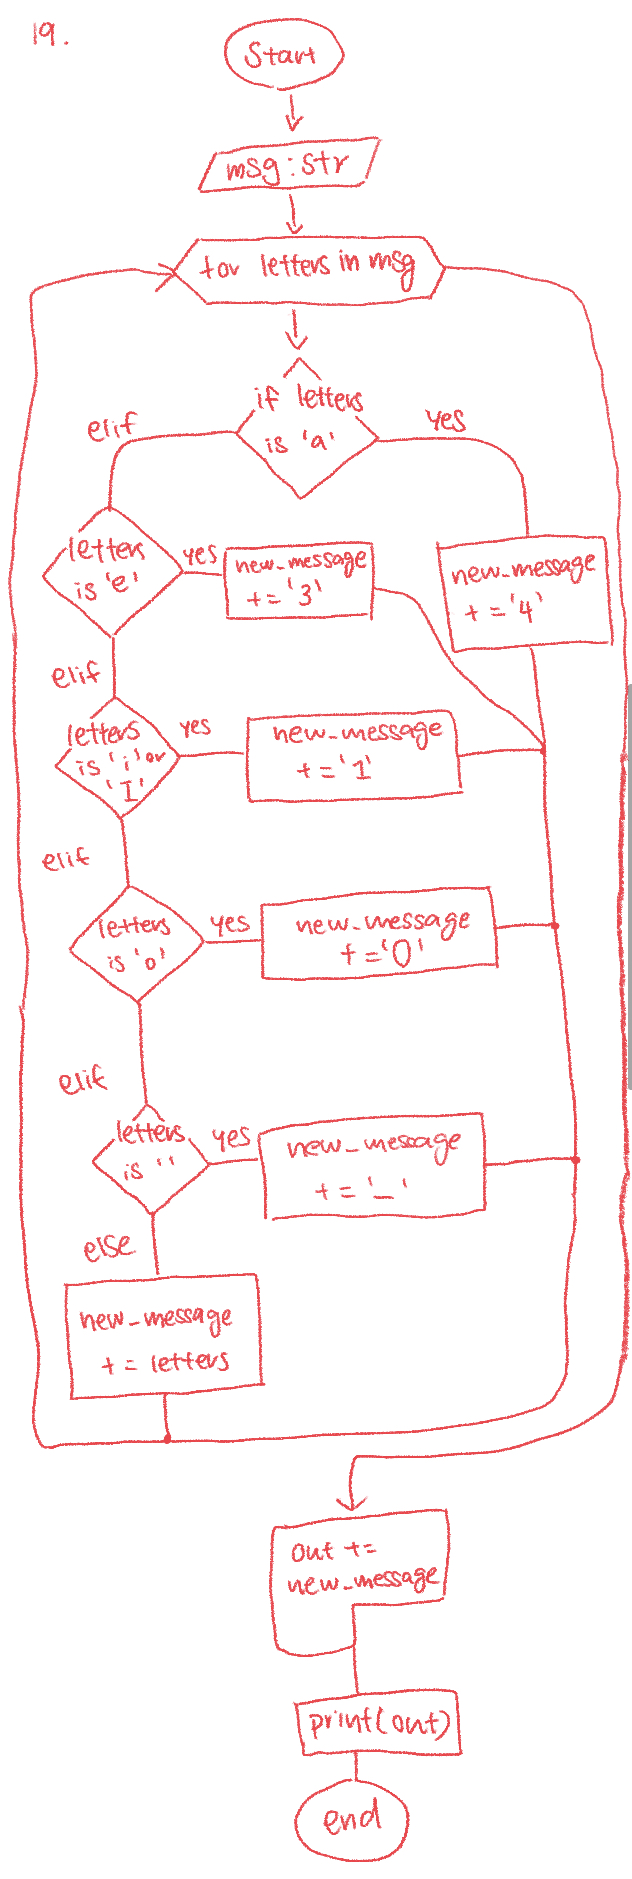 19.
Start
msg:str
for letters in msg
if letters
is 'a'
elif
yes
letters
is 'e'
yes
new_message
+='3'
new_message
+='4'
elif
letters
is 'i' or
'I'
yes
new_message
+='1'
elif
letters
is 'o'
yes
new_message
+='0'
elif
letters
is ' '
yes
new_message
+='_'
else
new_message
+= letters
out +=
new_message
print(out)
end